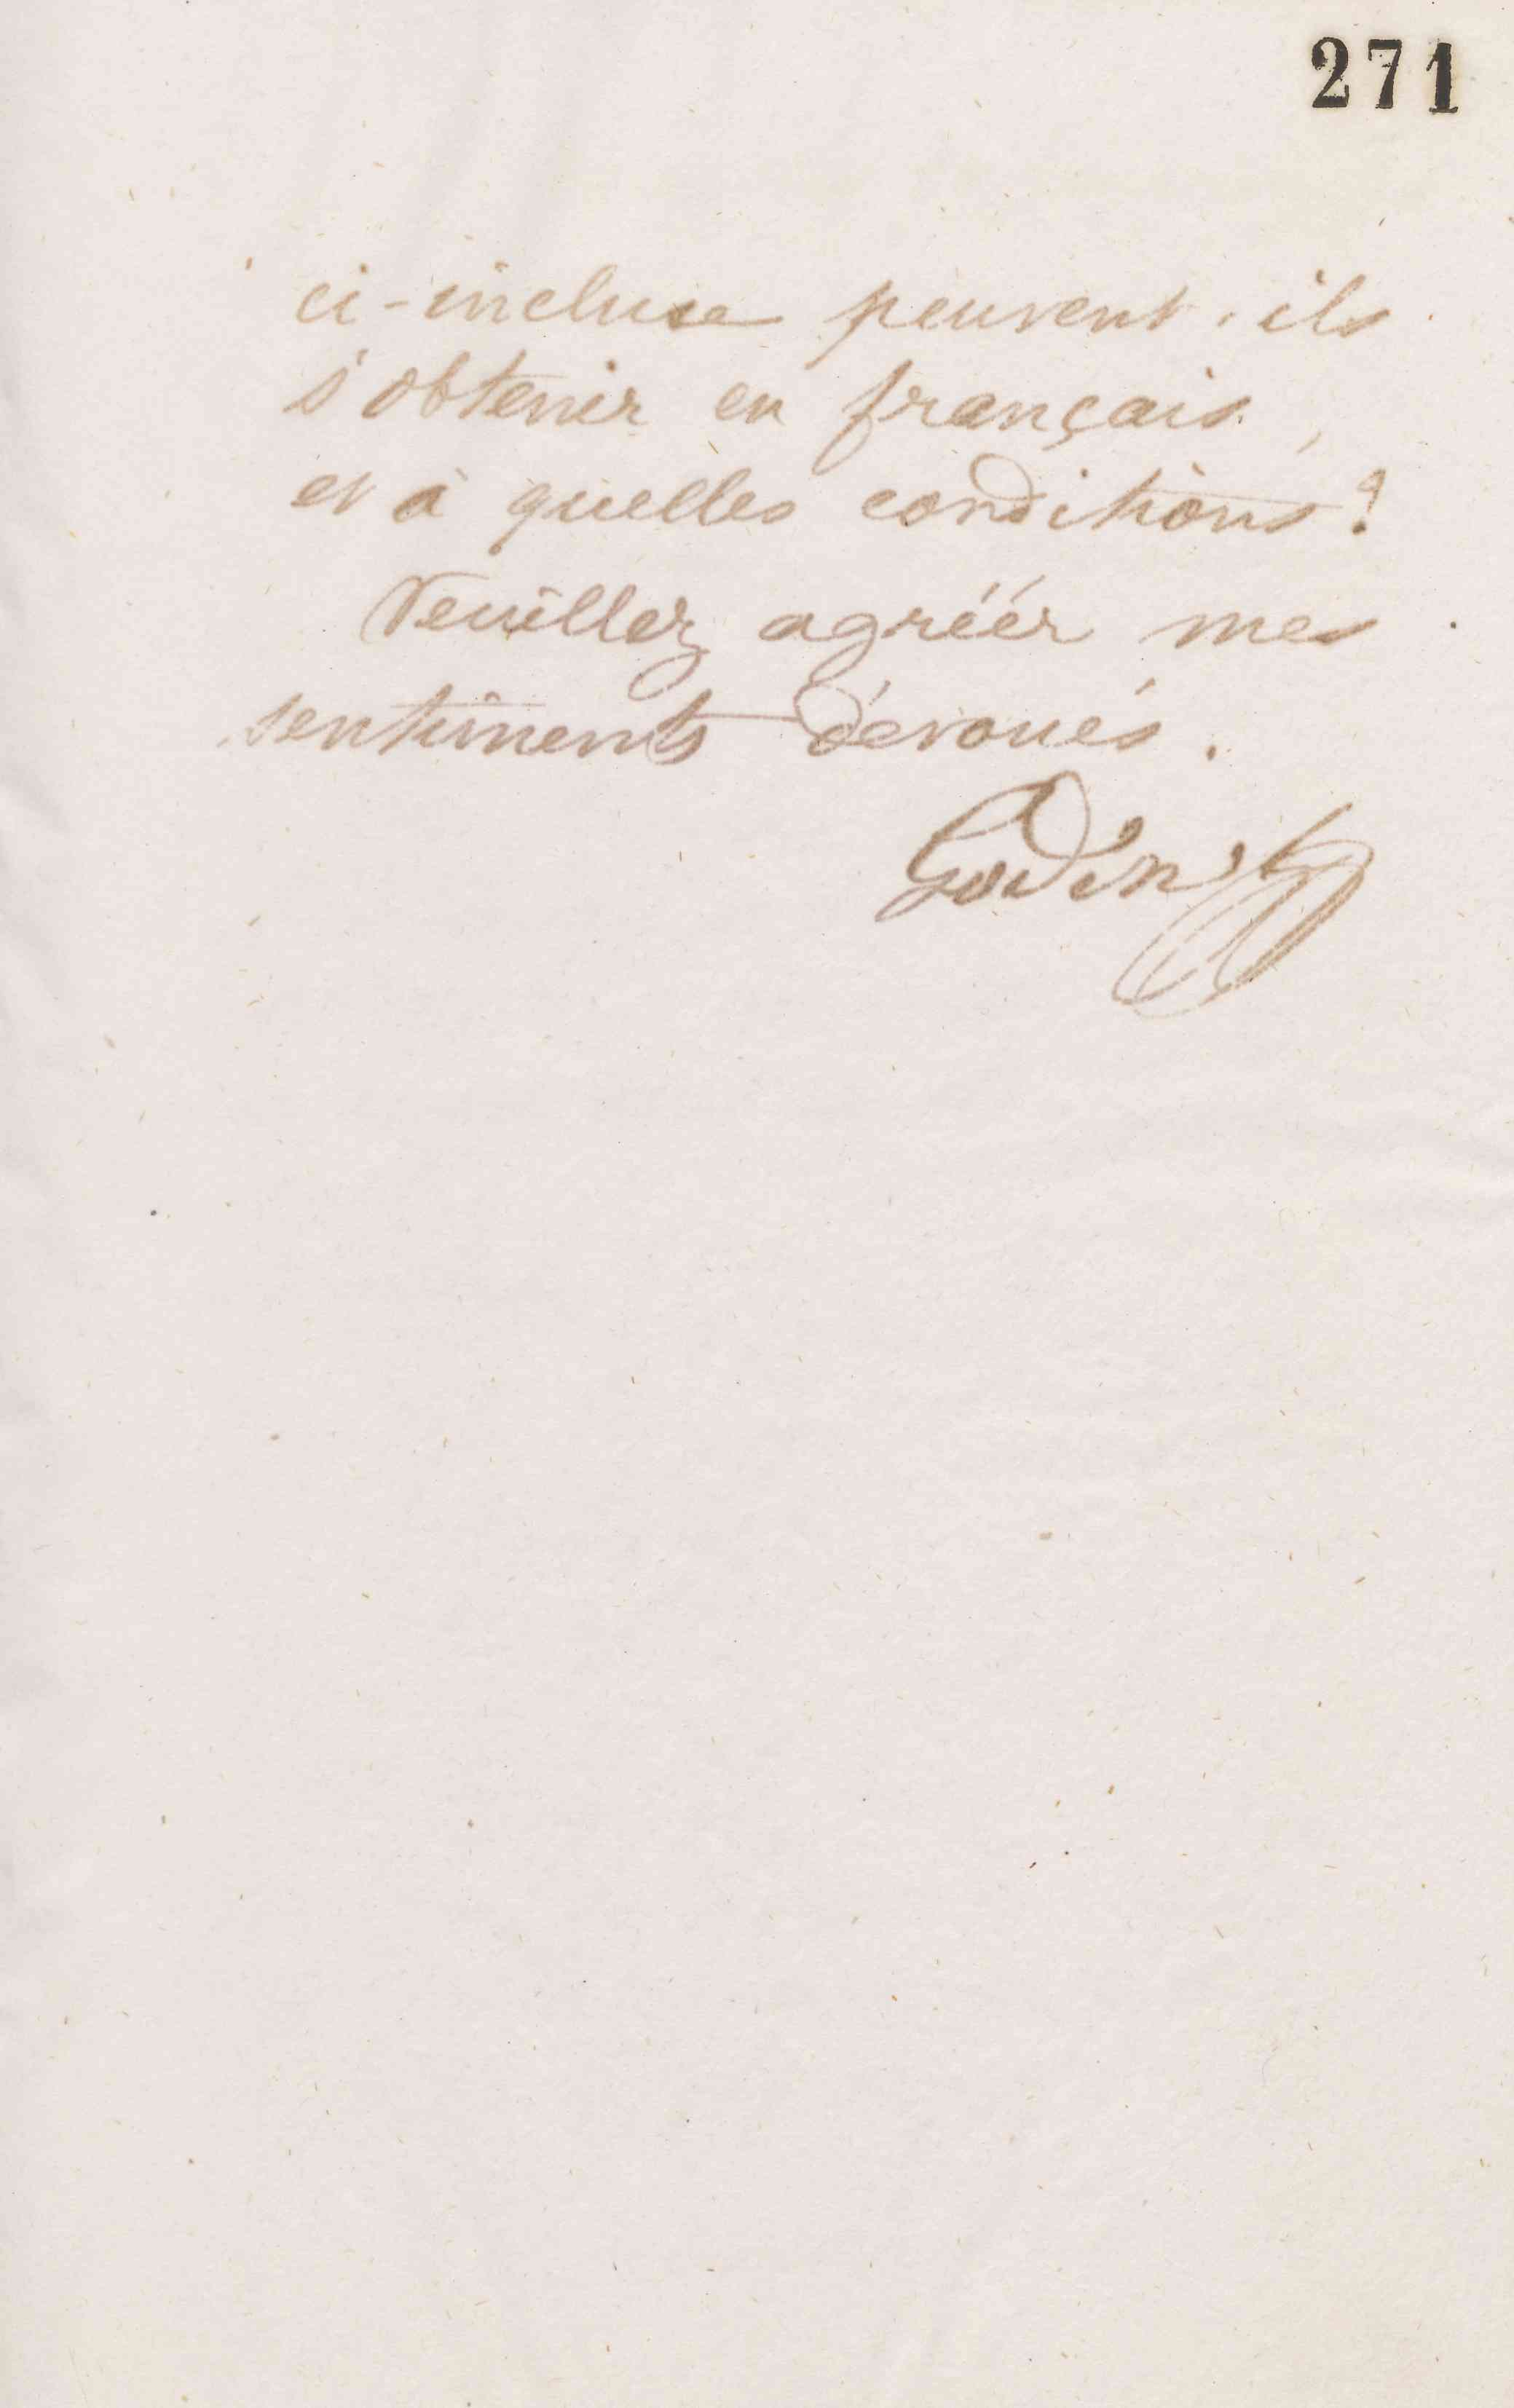 271
ci-incluse peuvent-ils
s'obtenir en français,
et à quelles conditions?
Veuillez agréér mes
sentiments dévoués.
Godin